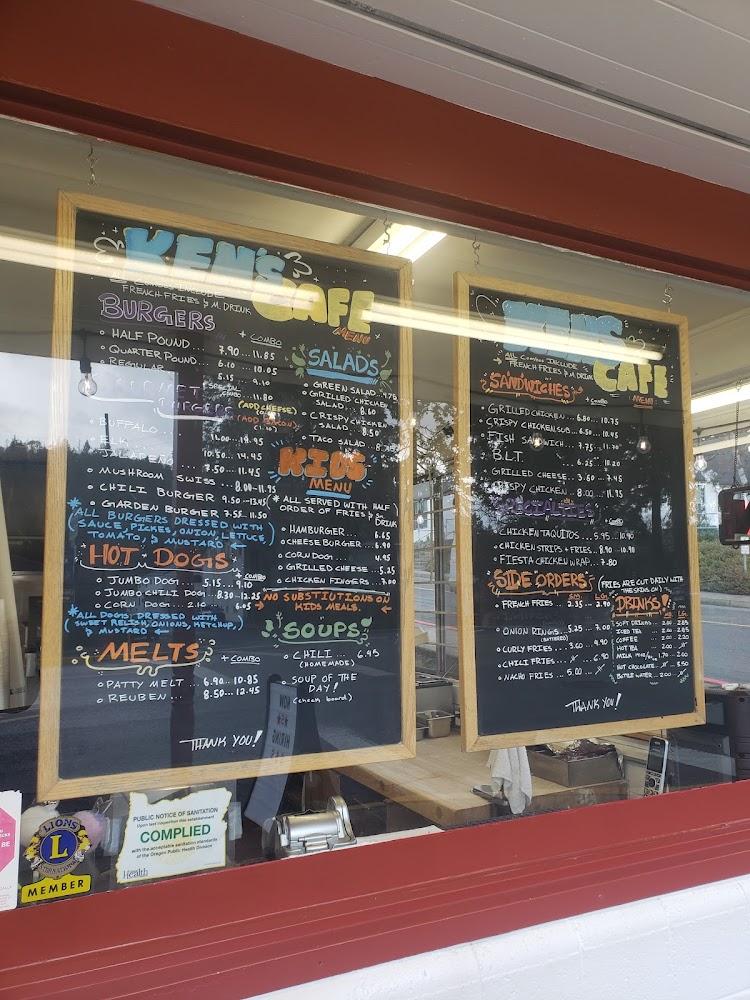 KEN'S
CAFE
MENU
FRENCH FRIES & M. DRINK
BURGERS
+ COMBO
HALF POUND... 7.90...11.85
QUARTER POUND... 6.10 10.05
REGULAR... 5.15 9.10
11.80
BURGERS (ADD CHEESE)
(ADD BACON)
BUFFALO... 11.00...14.95
ELK... 10.50...14.45
JALAPEÑO... 7.50...11.45
MUSHROOM SWISS 8.00-11.95
CHILI BURGER 9.50-13.45
GARDEN BURGER 7.55. 11.50
*ALL BURGERS DRESSED WITH
SAUCE, PICKES, ONION, LETTUCE,
TOMATO, & MUSTARD
HOT DOGS
+ COMBO
JUMBO DOG... 5.15... 9.10
JUMBO CHILI DOG 8.30-12.25
CORN DOG... 2.10 6.05
*ALL DOGS DRESSED WITH
SWEET RELISH, ONIONS, KETCHUP,
& MUSTARD
MELTS
+ COMBO
PATTY MELT... 6.90...10.85
REUBEN... 8.50...12.45
THANK YOU!
SALADS
GREEN SALAD 4.75
GRILLED CHICKEN
SALAD... 8.60
CRISPY CHICKEN
SALAD... 8.50
TACO SALAD
KIDS
MENU
(*ALL SERVED WITH HALF
ORDER OF FRIES & SM
DRINK
HAMBURGER... 6.65
CHEESEBURGER... 6.90
CORN DOG... 4.95
GRILLED CHEESE... 5.25
CHICKEN FINGERS... 7.00
NO SUBSTIUTIONS ON
KIDS MEALS.
SOUPS
CHILI... 6.95
(HOMEMADE)
SOUP OF THE
DAY!
(check board)
KEN'S
CAFE
MENU
ALL COMBOS INCLUDE
FRENCH FRIES & M. DRINK
SANDWICHES
+ COMBO
GRILLED CHICKEN... 6.80...10.75
CRISPY CHICKEN SUB... 6.50...10.45
FISH SANDWICH... 7.75...11.70
B.L.T. 6.25...10.20
GRILLED CHEESE... 3.60...7.45
CRISPY CHICKEN... 8.00...11.95
SPECIALTIES
+ COMBO
CHICKEN TAQUITOS... 5.95...10.90
CHICKEN STRIPS + FRIES... 8.90...10.90
FIESTA CHICKEN WRAP... 7.80
SIDE ORDERS
(FRIES ARE CUT DAILY WITH
THE SKINS ON)
SM. LG.
FRENCH FRIES... 2.35...2.90
ONION RINGS... 5.25...7.00
(BATTERED)
CURLY FRIES... 3.60...4.90
CHILI FRIES... 6.90
NACHO FRIES... 5.00
DRINKS!
SOFT DRINKS 2.85
ICED TEA 2.85
COFFEE 2.20
HOT TEA
MILK 1.70 2.00
HOT CHOCOLATE 3.50
BOTTLE WATER 2.00
THANK YOU!
LIONS
L
INTERNATIONAL
MEMBER
PUBLIC NOTICE OF SANITATION
Upon last inspection this establishment
COMPLIED
with the acceptable sanitation standards
of the Oregon Public Health Division
Health